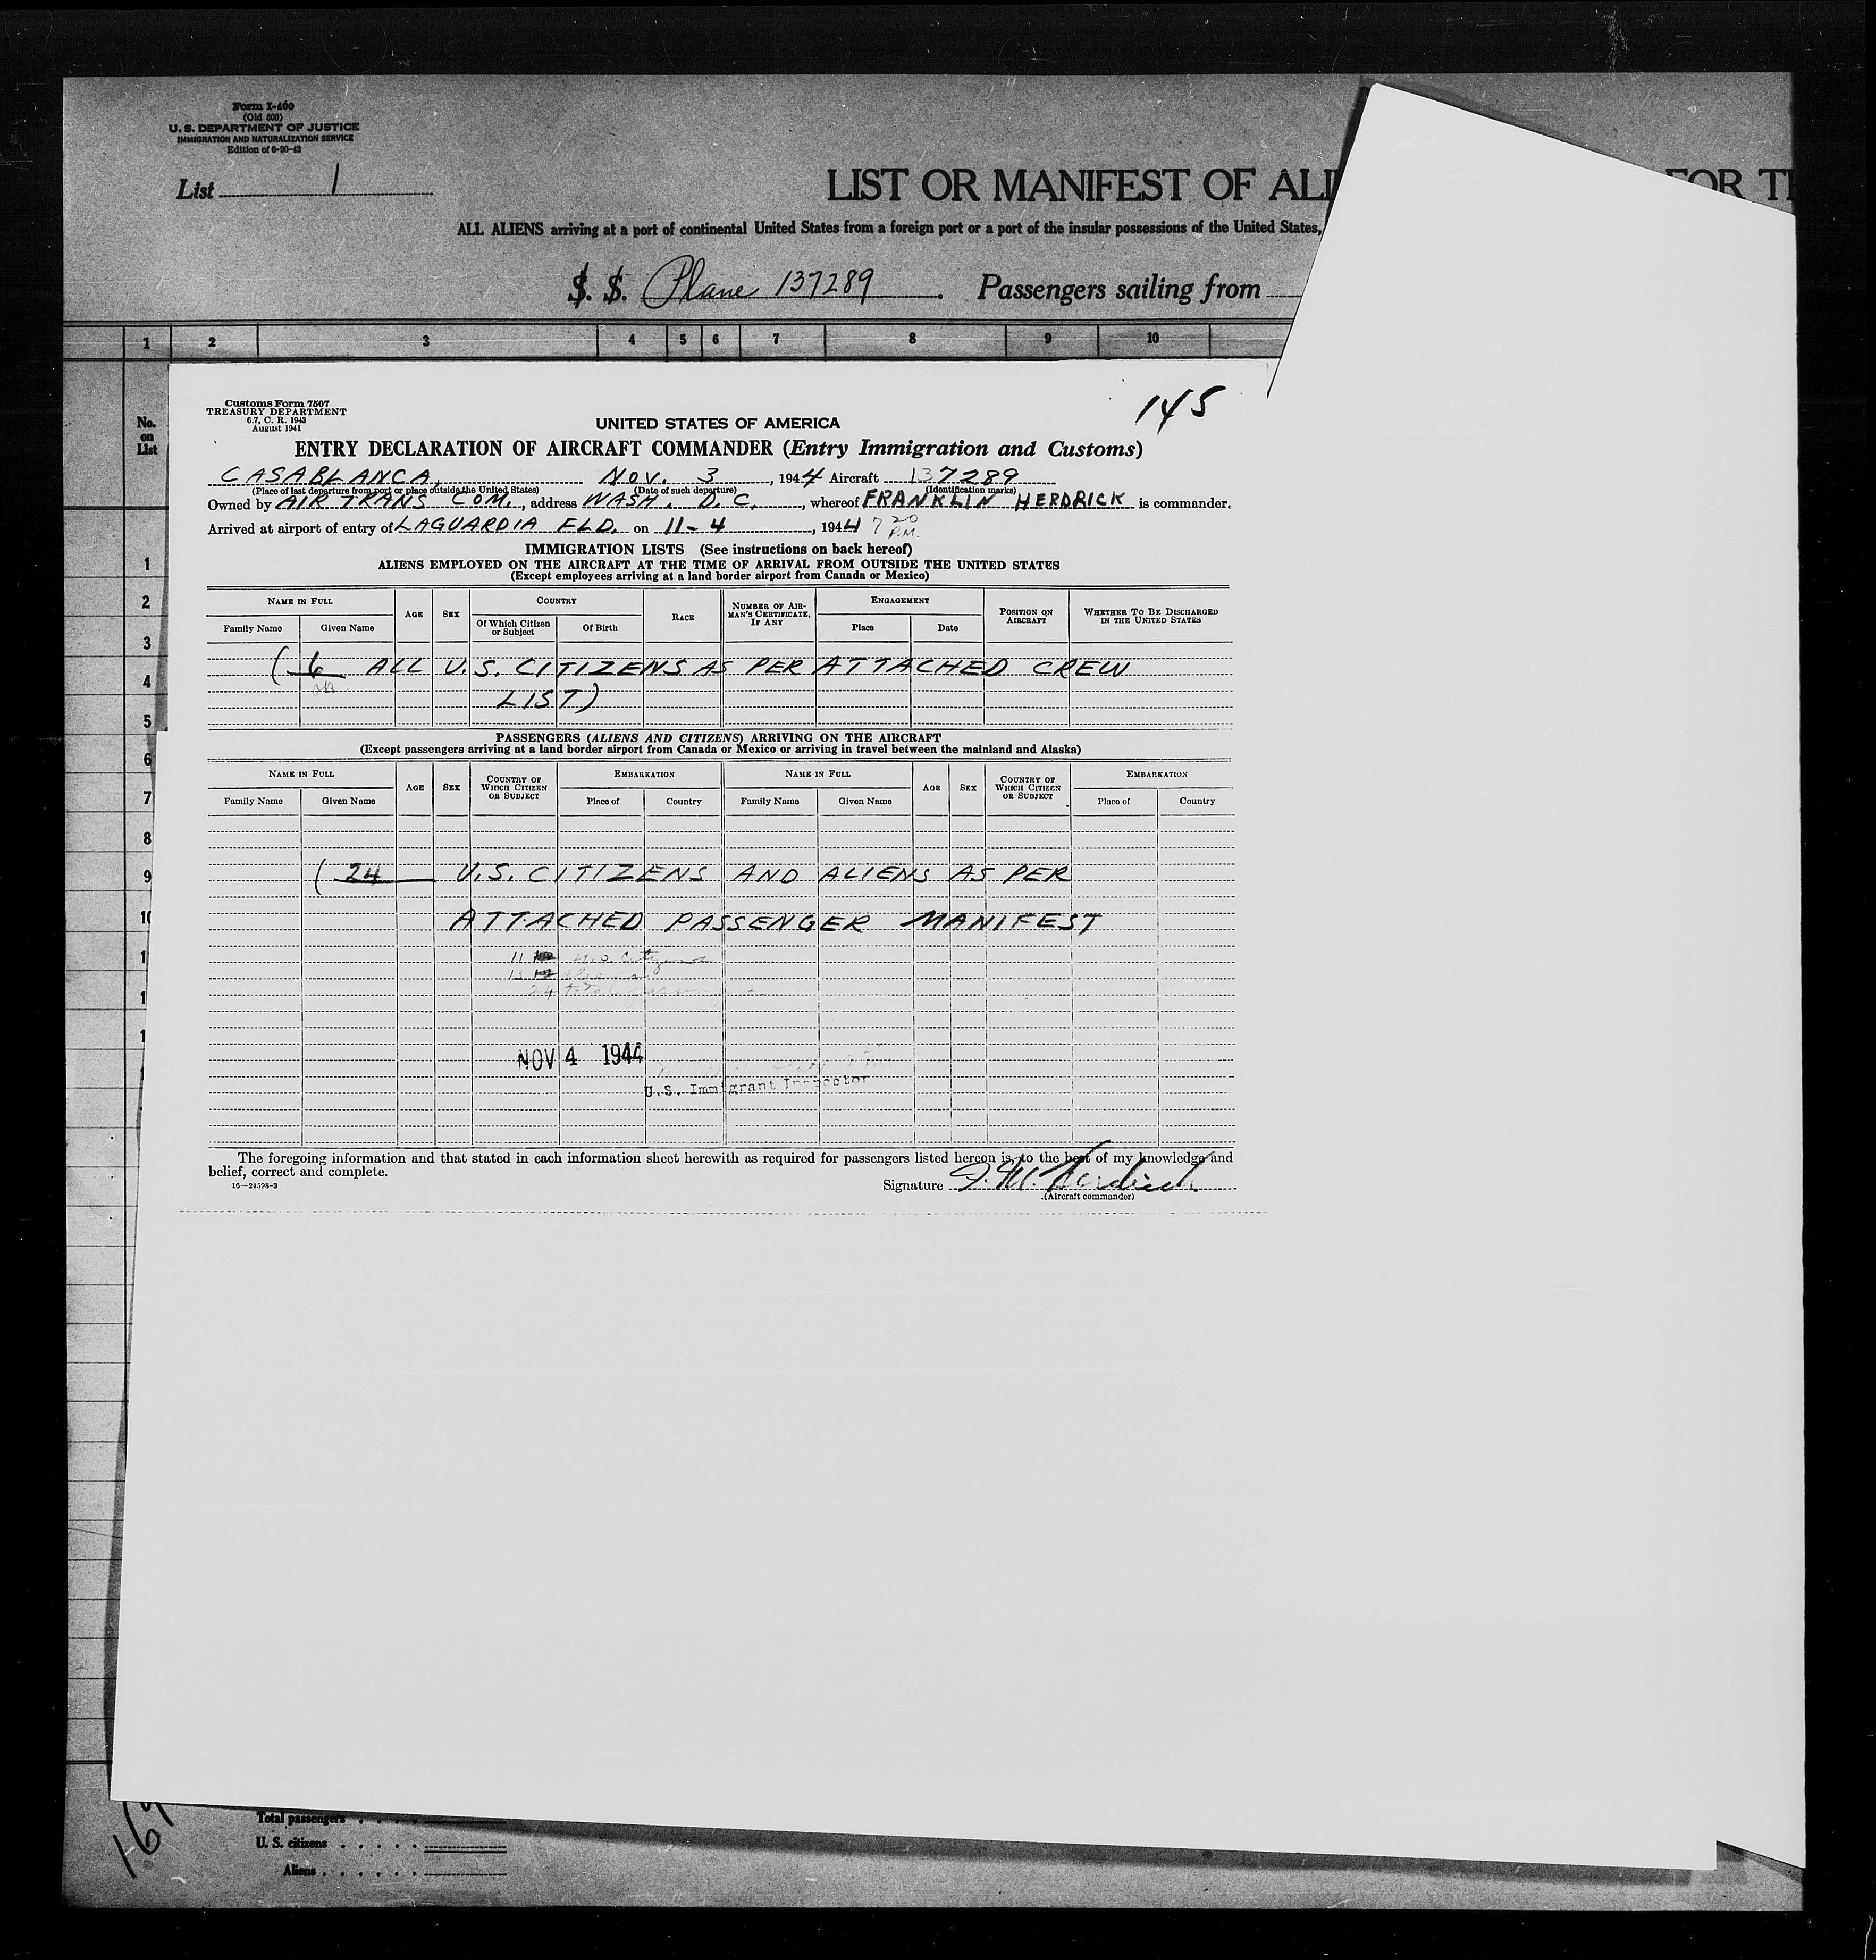 Form I-400
(Old 500)
U. S. DEPARTMENT OF JUSTICE
IMMIGRATION AND NATURALIZATION SERVICE
Edition of 6-20-42
List 1
LIST OR MANIFEST OF ALI FOR T
ALL ALIENS arriving at a port of continental United States from a foreign port or a port of the insular possessions of the United States,
S. S. Plane 137289 . Passengers sailing from
1 2 3 4 5 6 7 8 9 10
No. on List
Customs Form 7507
TREASURY DEPARTMENT
6.7, C. R. 1943
August 1941
145
UNITED STATES OF AMERICA
ENTRY DECLARATION OF AIRCRAFT COMMANDER (Entry Immigration and Customs)
CASABLANCA, NOV. 3, 1944 Aircraft 137289
(Place of last departure from port or place outside the United States) (Date of such departure) (Identification marks)
Owned by AIR TRANS COM., address WASH. D.C., whereof FRANKLIN HERDRICK is commander.
Arrived at airport of entry of LAGUARDIA FLD. on 11-4, 1944 7 20 P.M.
IMMIGRATION LISTS (See instructions on back hereof)
ALIENS EMPLOYED ON THE AIRCRAFT AT THE TIME OF ARRIVAL FROM OUTSIDE THE UNITED STATES
(Except employees arriving at a land border airport from Canada or Mexico)
NAME IN FULL AGE SEX COUNTRY RACE NUMBER OF AIRMAN'S CERTIFICATE, IF ANY ENGAGEMENT POSITION ON AIRCRAFT WHETHER TO BE DISCHARGED IN THE UNITED STATES
Family Name Given Name Of Which Citizen or Subject Of Birth Place Date
( 6 ALL U.S. CITIZENS AS PER ATTACHED CREW
LIST)
PASSENGERS (ALIENS AND CITIZENS) ARRIVING ON THE AIRCRAFT
(Except passengers arriving at a land border airport from Canada or Mexico or arriving in travel between the mainland and Alaska)
NAME IN FULL AGE SEX COUNTRY OF WHICH CITIZEN OR SUBJECT EMBARKATION NAME IN FULL AGE SEX COUNTRY OF WHICH CITIZEN OR SUBJECT EMBARKATION
Family Name Given Name Place of Country Family Name Given Name Place of Country
( 24 U.S. CITIZENS AND ALIENS AS PER
ATTACHED PASSENGER MANIFEST
11 U.S. Citizens
13 aliens
24 total passengers
NOV 4 1944
U.S. Immigrant Inspector
The foregoing information and that stated in each information sheet herewith as required for passengers listed hereon is, to the best of my knowledge and
belief, correct and complete.
16—24598-3
Signature F. M. Herdrick
(Aircraft commander)
1
2
3
4
5
6
7
8
9
10
1
1
1
Total passengers
U. S. citizens
Aliens